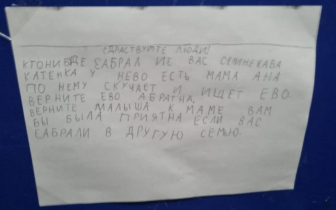 ЗДРАСТВУЙТЕ ЛЮДИ!
КТОНИБДЕ ЗАБРАЛ ИС ВАС
КАТЕНКА У НЕВО ЕСТЬ МАМА АНА
ПО НЕМУ СКУЧАЕТ И ИЩЕТ ЕВО
ВЕРНИТЕ ЕВО АБРАТНА
ВЕРНИТЕ МАЛЫША К МАМЕ ВАМ
БЫ БЫЛА ПРИЯТНА ЕСЛИ ВАС
ЗАБРАЛИ В ДРУГУЮ СЕМЬЮ.